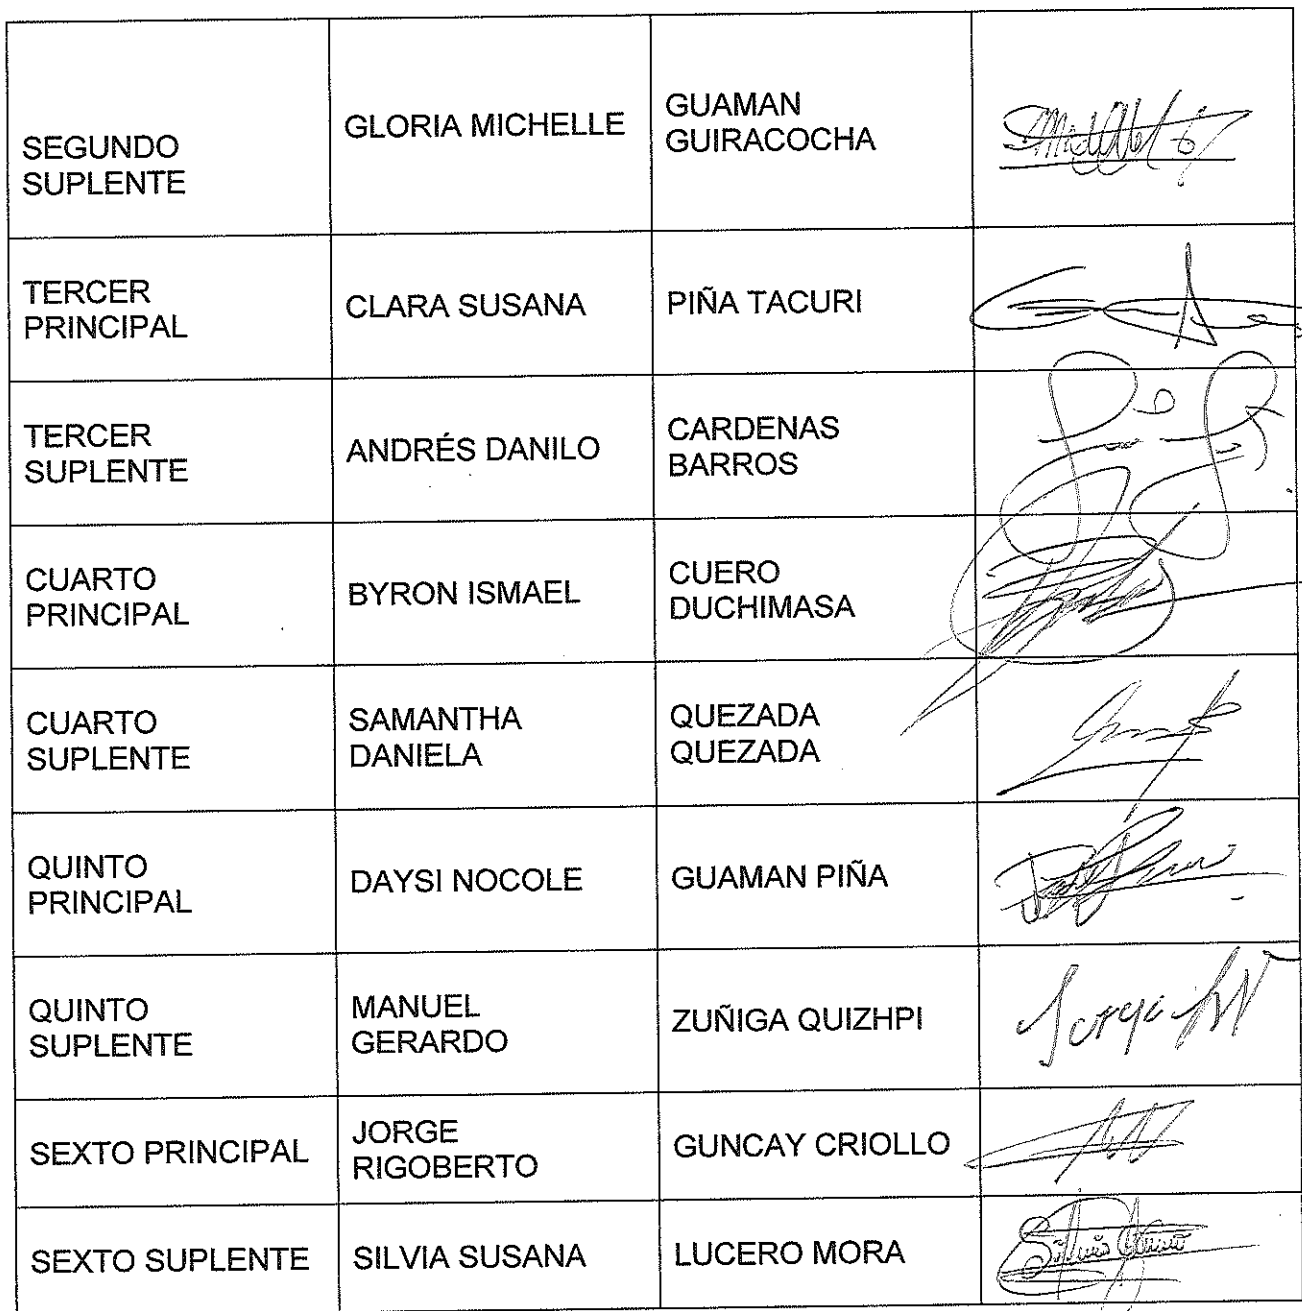 SEGUNDO
SUPLENTE
GLORIA MICHELLE
GUAMAN
GUIRACOCHA
TERCER
PRINCIPAL
CLARA SUSANA
PIÑA TACURI
TERCER
SUPLENTE
ANDRÉS DANILO
CARDENAS
BARROS
CUARTO
PRINCIPAL
BYRON ISMAEL
CUERO
DUCHIMASA
CUARTO
SUPLENTE
SAMANTHA
DANIELA
QUEZADA
QUEZADA
QUINTO
PRINCIPAL
DAYSI NOCOLE
GUAMAN PIÑA
QUINTO
SUPLENTE
MANUEL
GERARDO
ZUÑIGA QUIZHPI
SEXTO PRINCIPAL
JORGE
RIGOBERTO
GUNCAY CRIOLLO
SEXTO SUPLENTE
SILVIA SUSANA
LUCERO MORA